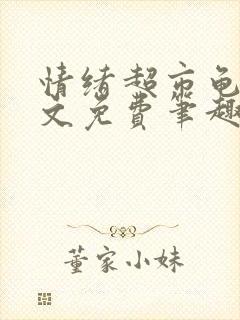 情绪超市龟
文免费笔趣
董家小妹